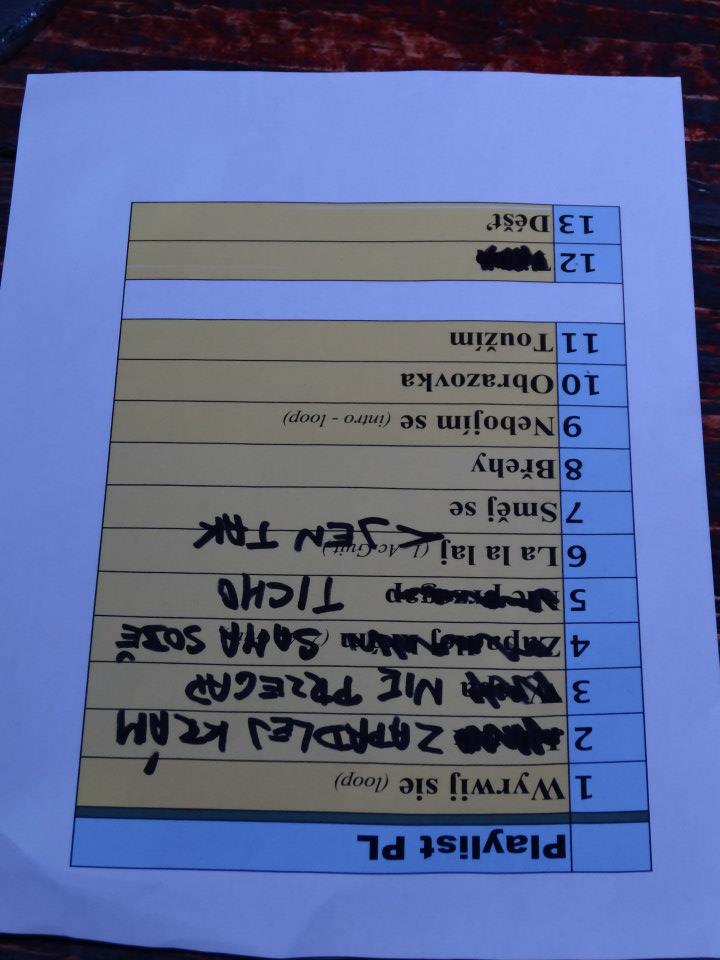 Playlist PL
1 Wyrwij sie (loop)
2 ZAPADLEJ KRÁM
3 NIE PRZEGAP
4 SAMA SOBĚ
5 TICHO
6 La la laj (1. Ac Guit) < JEN TAK
7 Směj se
8 Břehy
9 Nebojím se (intro - loop)
10 Obrazovka
11 Toužím
12
13 Déšť